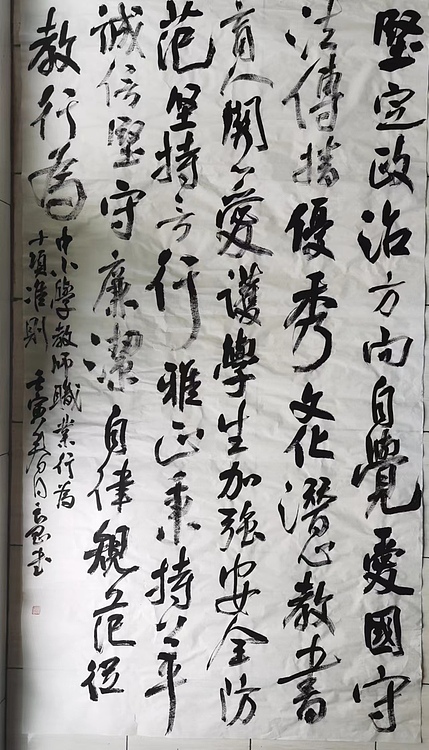 堅定政治方向自覺愛國守
法傳播優秀文化潛心教書
育人關心愛護學生加強安全防
范坚持言行雅正秉持公平
誠信堅守廉潔自律規范從
教行為
中小學教師職業行為
十項准則 壬寅 書